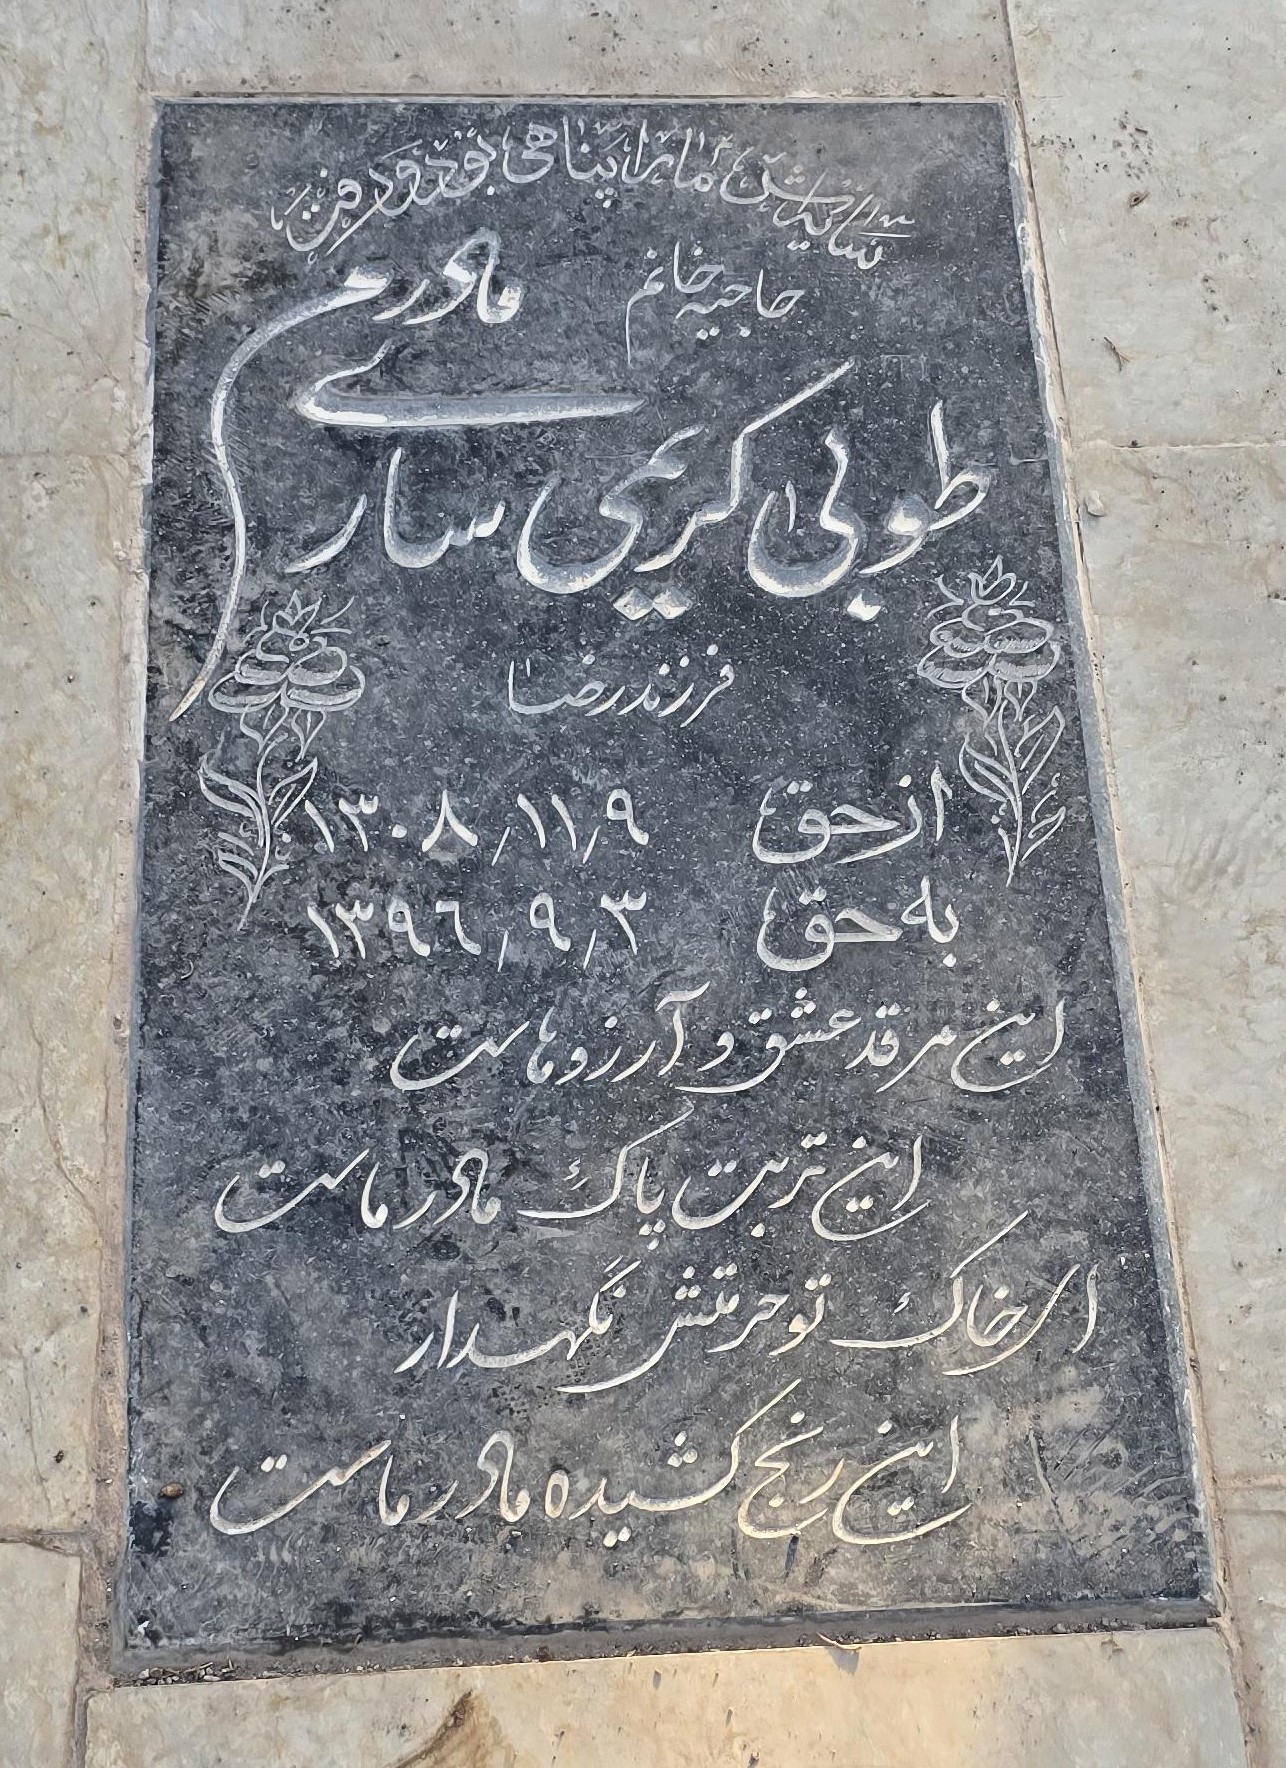 سایه‌اش ما را پناهی بود و رفت
حاجیه خانم مادرم
طوبی کریمی ساری
فرزند رضا
از حق ۱۳۰۸/۱۱/۹
به حق ۱۳۹۶/۹/۳
این مرقد عشق و آرزوهاست
این تربت پاک مادر ماست
ای خاک تو حرمتش نگهدار
این رنج کشیده مادر ماست